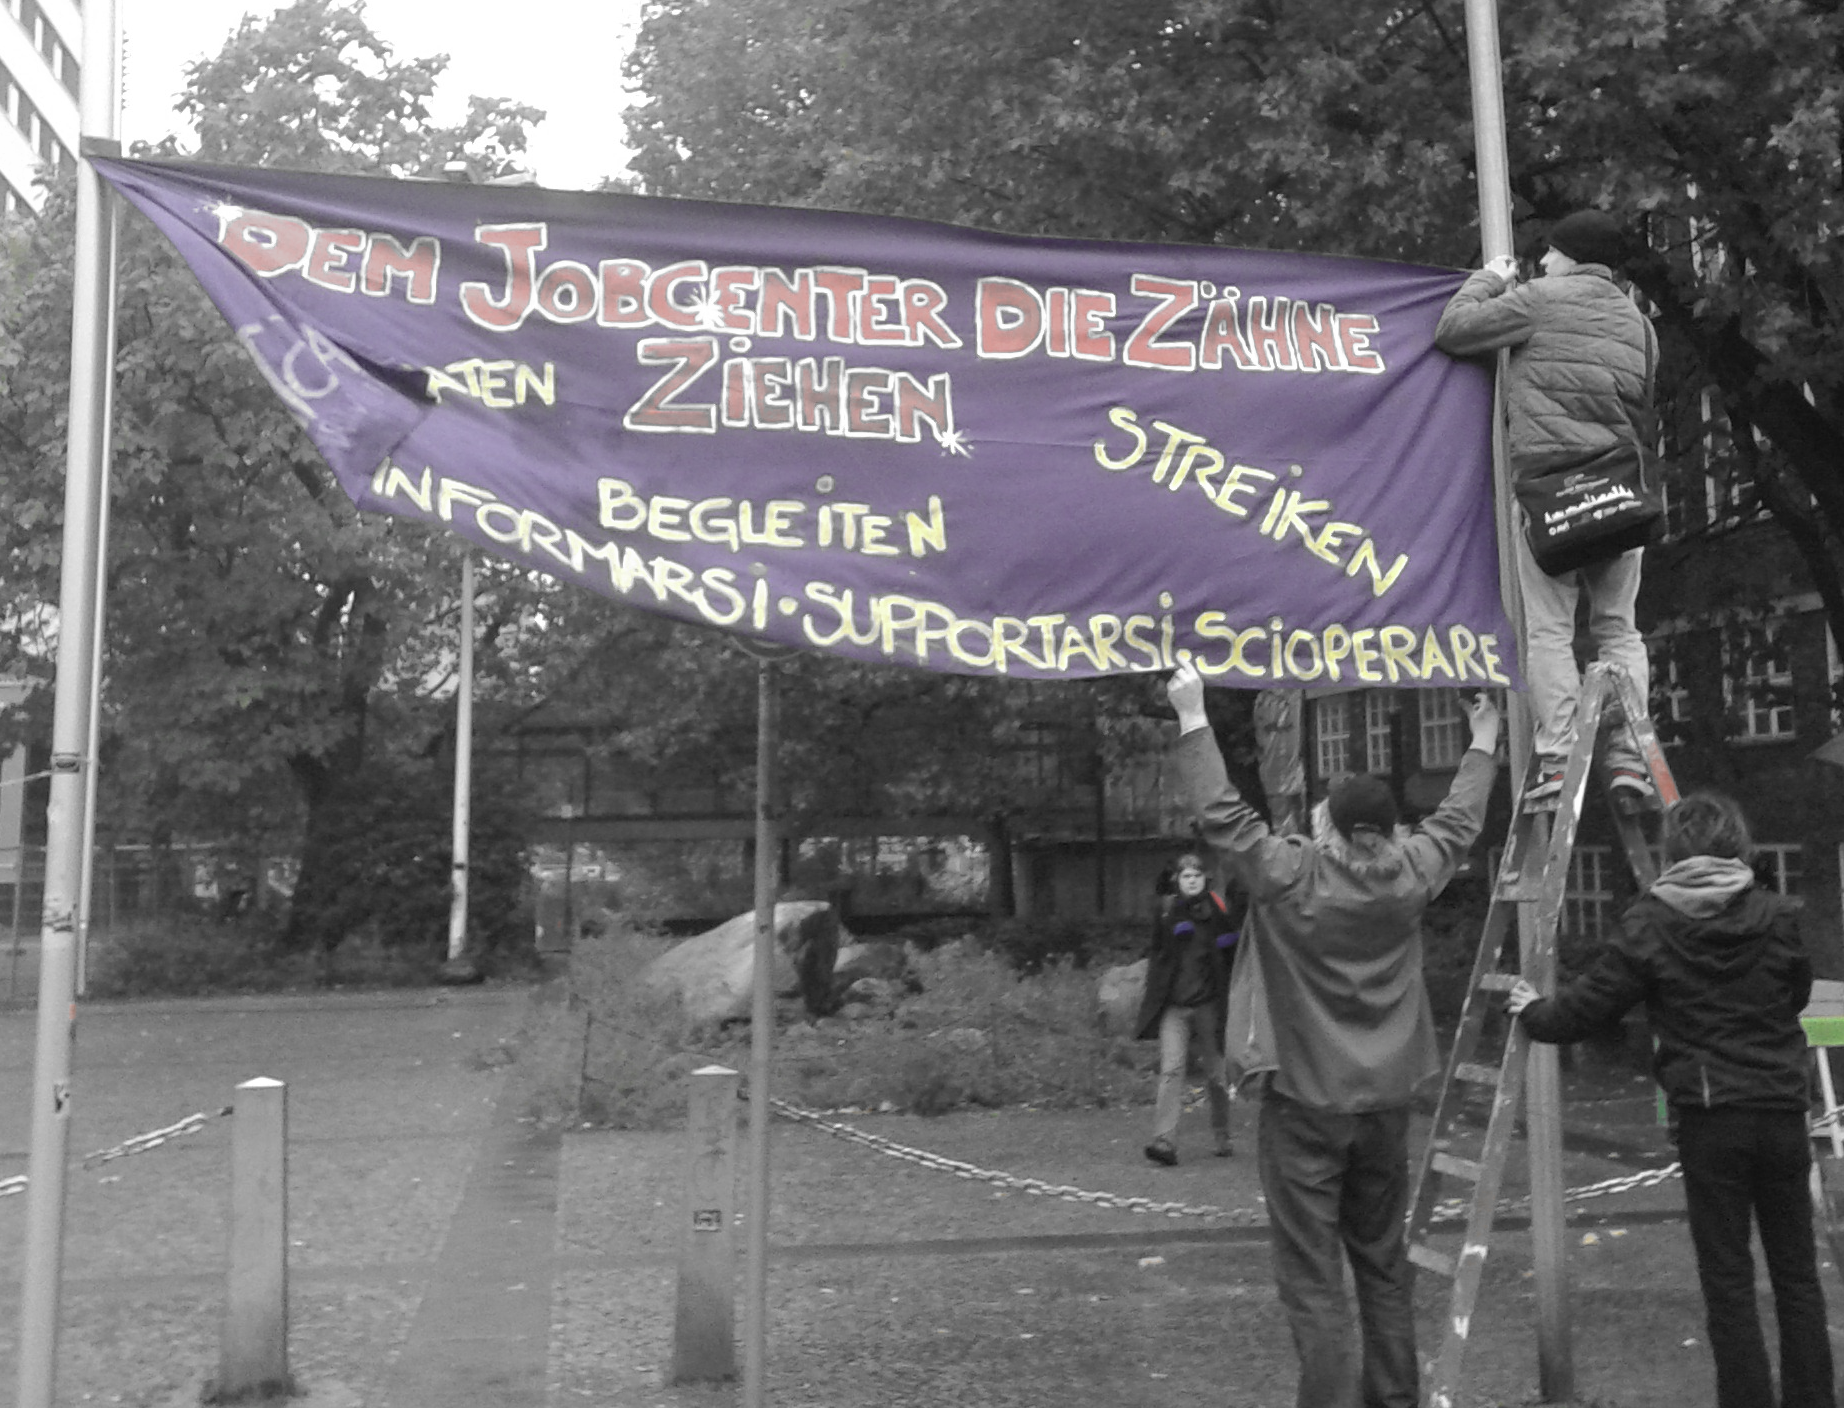 DEM JOBCENTER DIE ZÄHNE
ZIEHEN
ATEN
STREIKEN
BEGLEITEN
INFORMARSI · SUPPORTARSI · SCIOPERARE